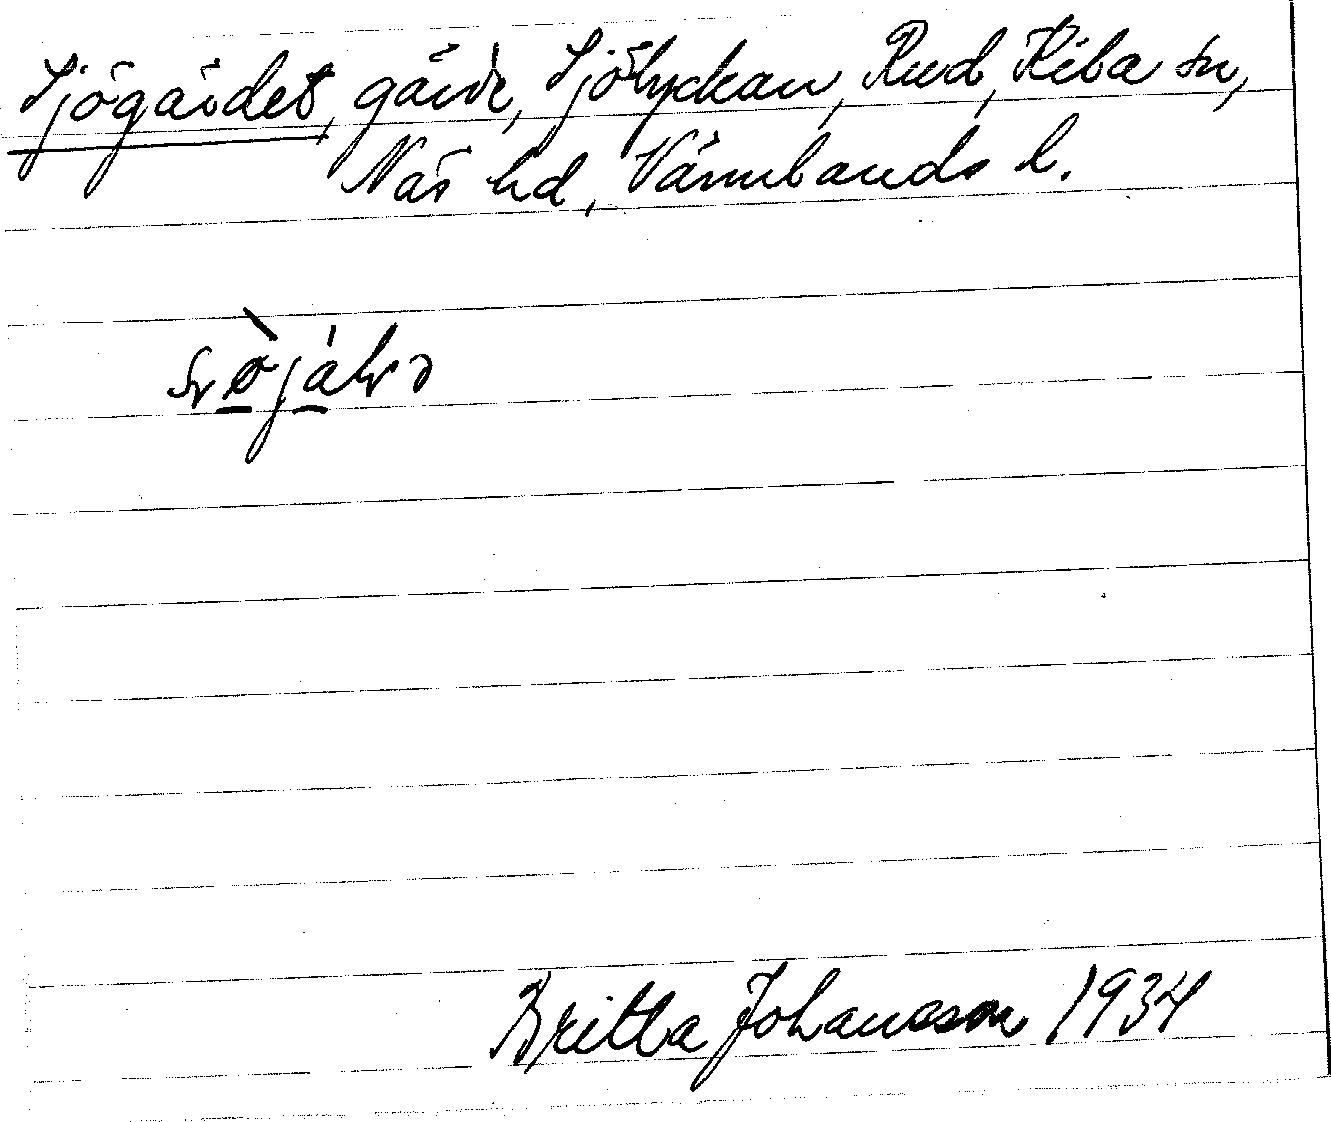 Sjögärdet, gärde, Sjölyckan, Rud, Kila sn,
Näs hd, Värmlands l.
Britta Johansson 1934